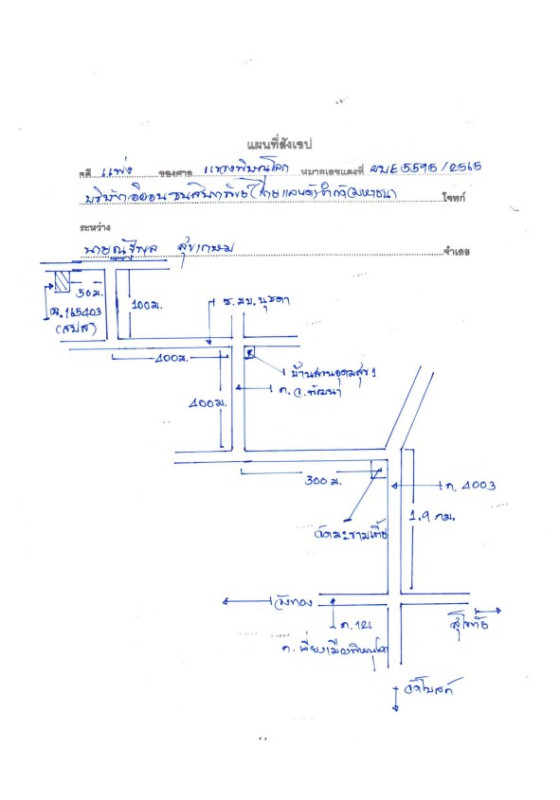 แผนที่สังเขป
คดี แพ่ง ของศาล แขวงพิษณุโลก หมายเลขแดงที่ ผบE5595/2565
บริษัท อิออน ธนสินทรัพย์ (ไทยแลนด์) จำกัด (มหาชน) โจทก์
ระหว่าง
นายณัฐพล สุขเกษม จำเลย
50 ม.
100 ม.
ฉ.165403
(สปส)
ซ.มบ.นุชดา
400 ม.
บ้านสวนอุดมสุข 1
400 ม.
300 ม.
ถ.4003
1.9 กม.
วัดมะขามเตี้ย
วังทอง
สุโขทัย
ถ.121
ถ.เลี่ยงเมืองพิษณุโลก
วัดโบสถ์